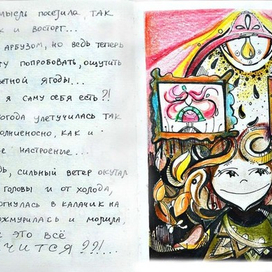 мысль посетила, так
к и восторг...
арбузом, но ведь теперь
ту попробовать, ощутить
етной ягоды...
я саму себя есть?!
когода улетучилась так
олниеносно, как и
е настроение...
ь, сильный ветер окутал
головы и от холода,
огнулась в калачик на
охмурилась и
это всё
чится??!...